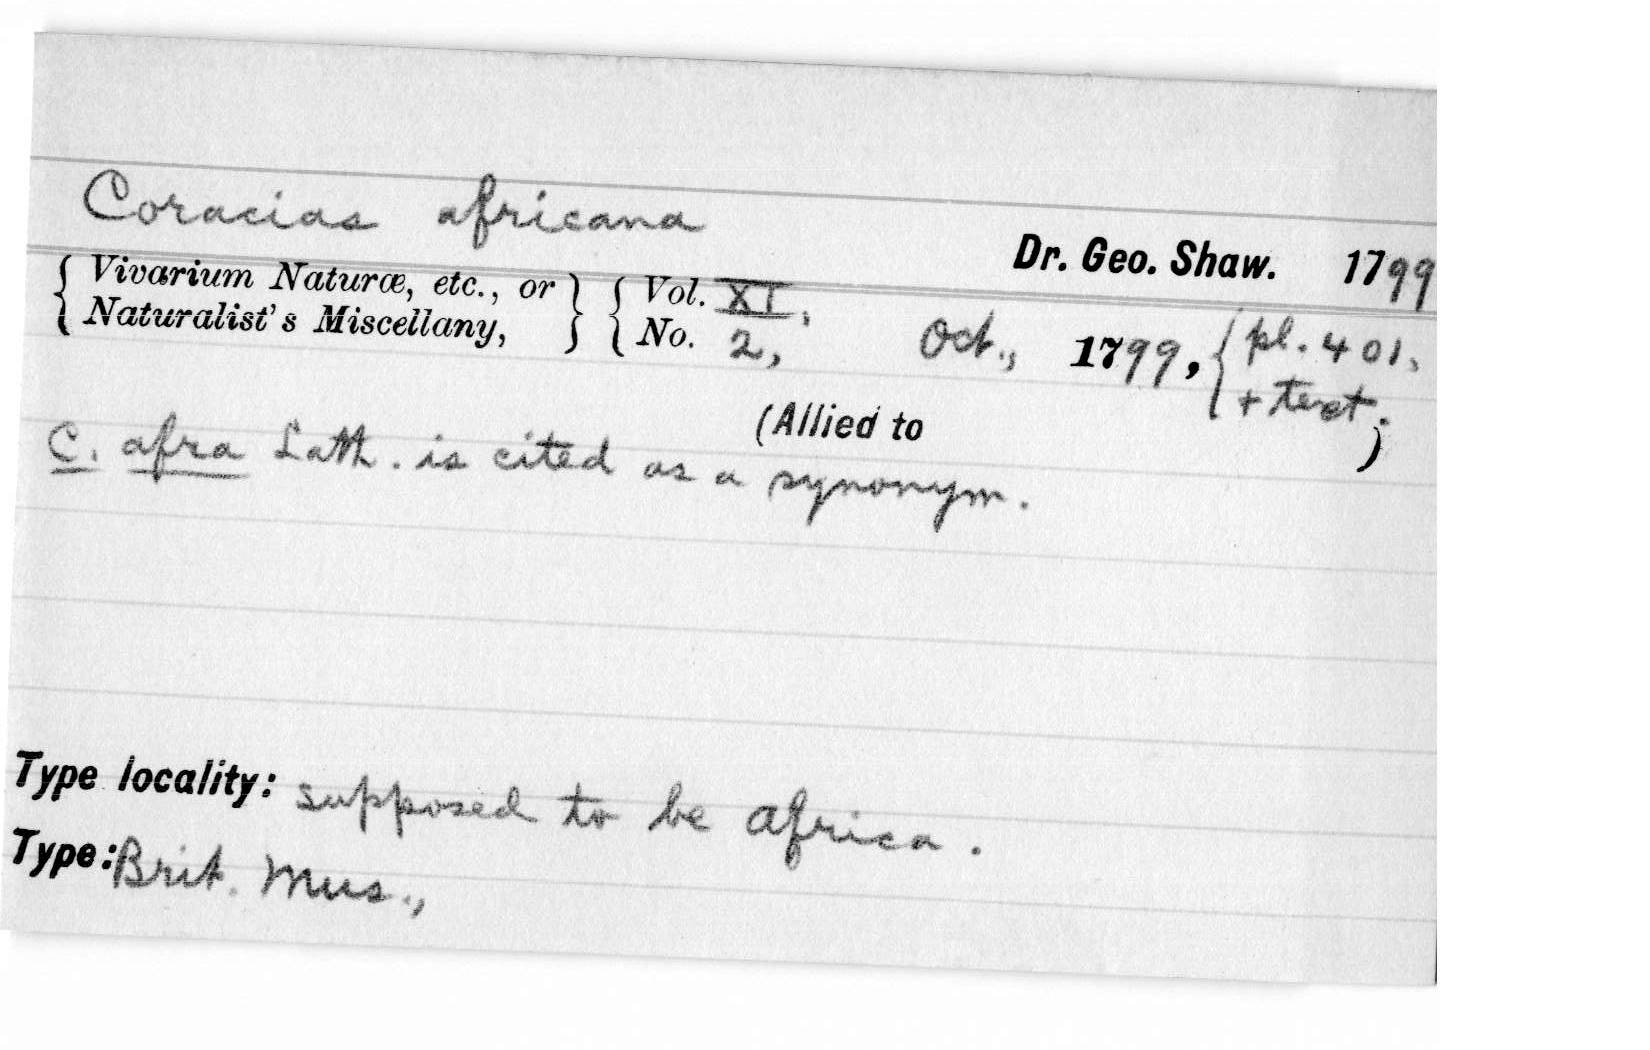 Coracias africana
Dr. Geo. Shaw. 1799
{ Vivarium Naturæ, etc., or } { Vol. XI,
{ Naturalist's Miscellany, } { No. 2, Oct., 1799, { pl. 401, + text.
(Allied to )
C. afra Lath. is cited as a synonym.
Type locality: supposed to be Africa.
Type: Brit. Mus.,